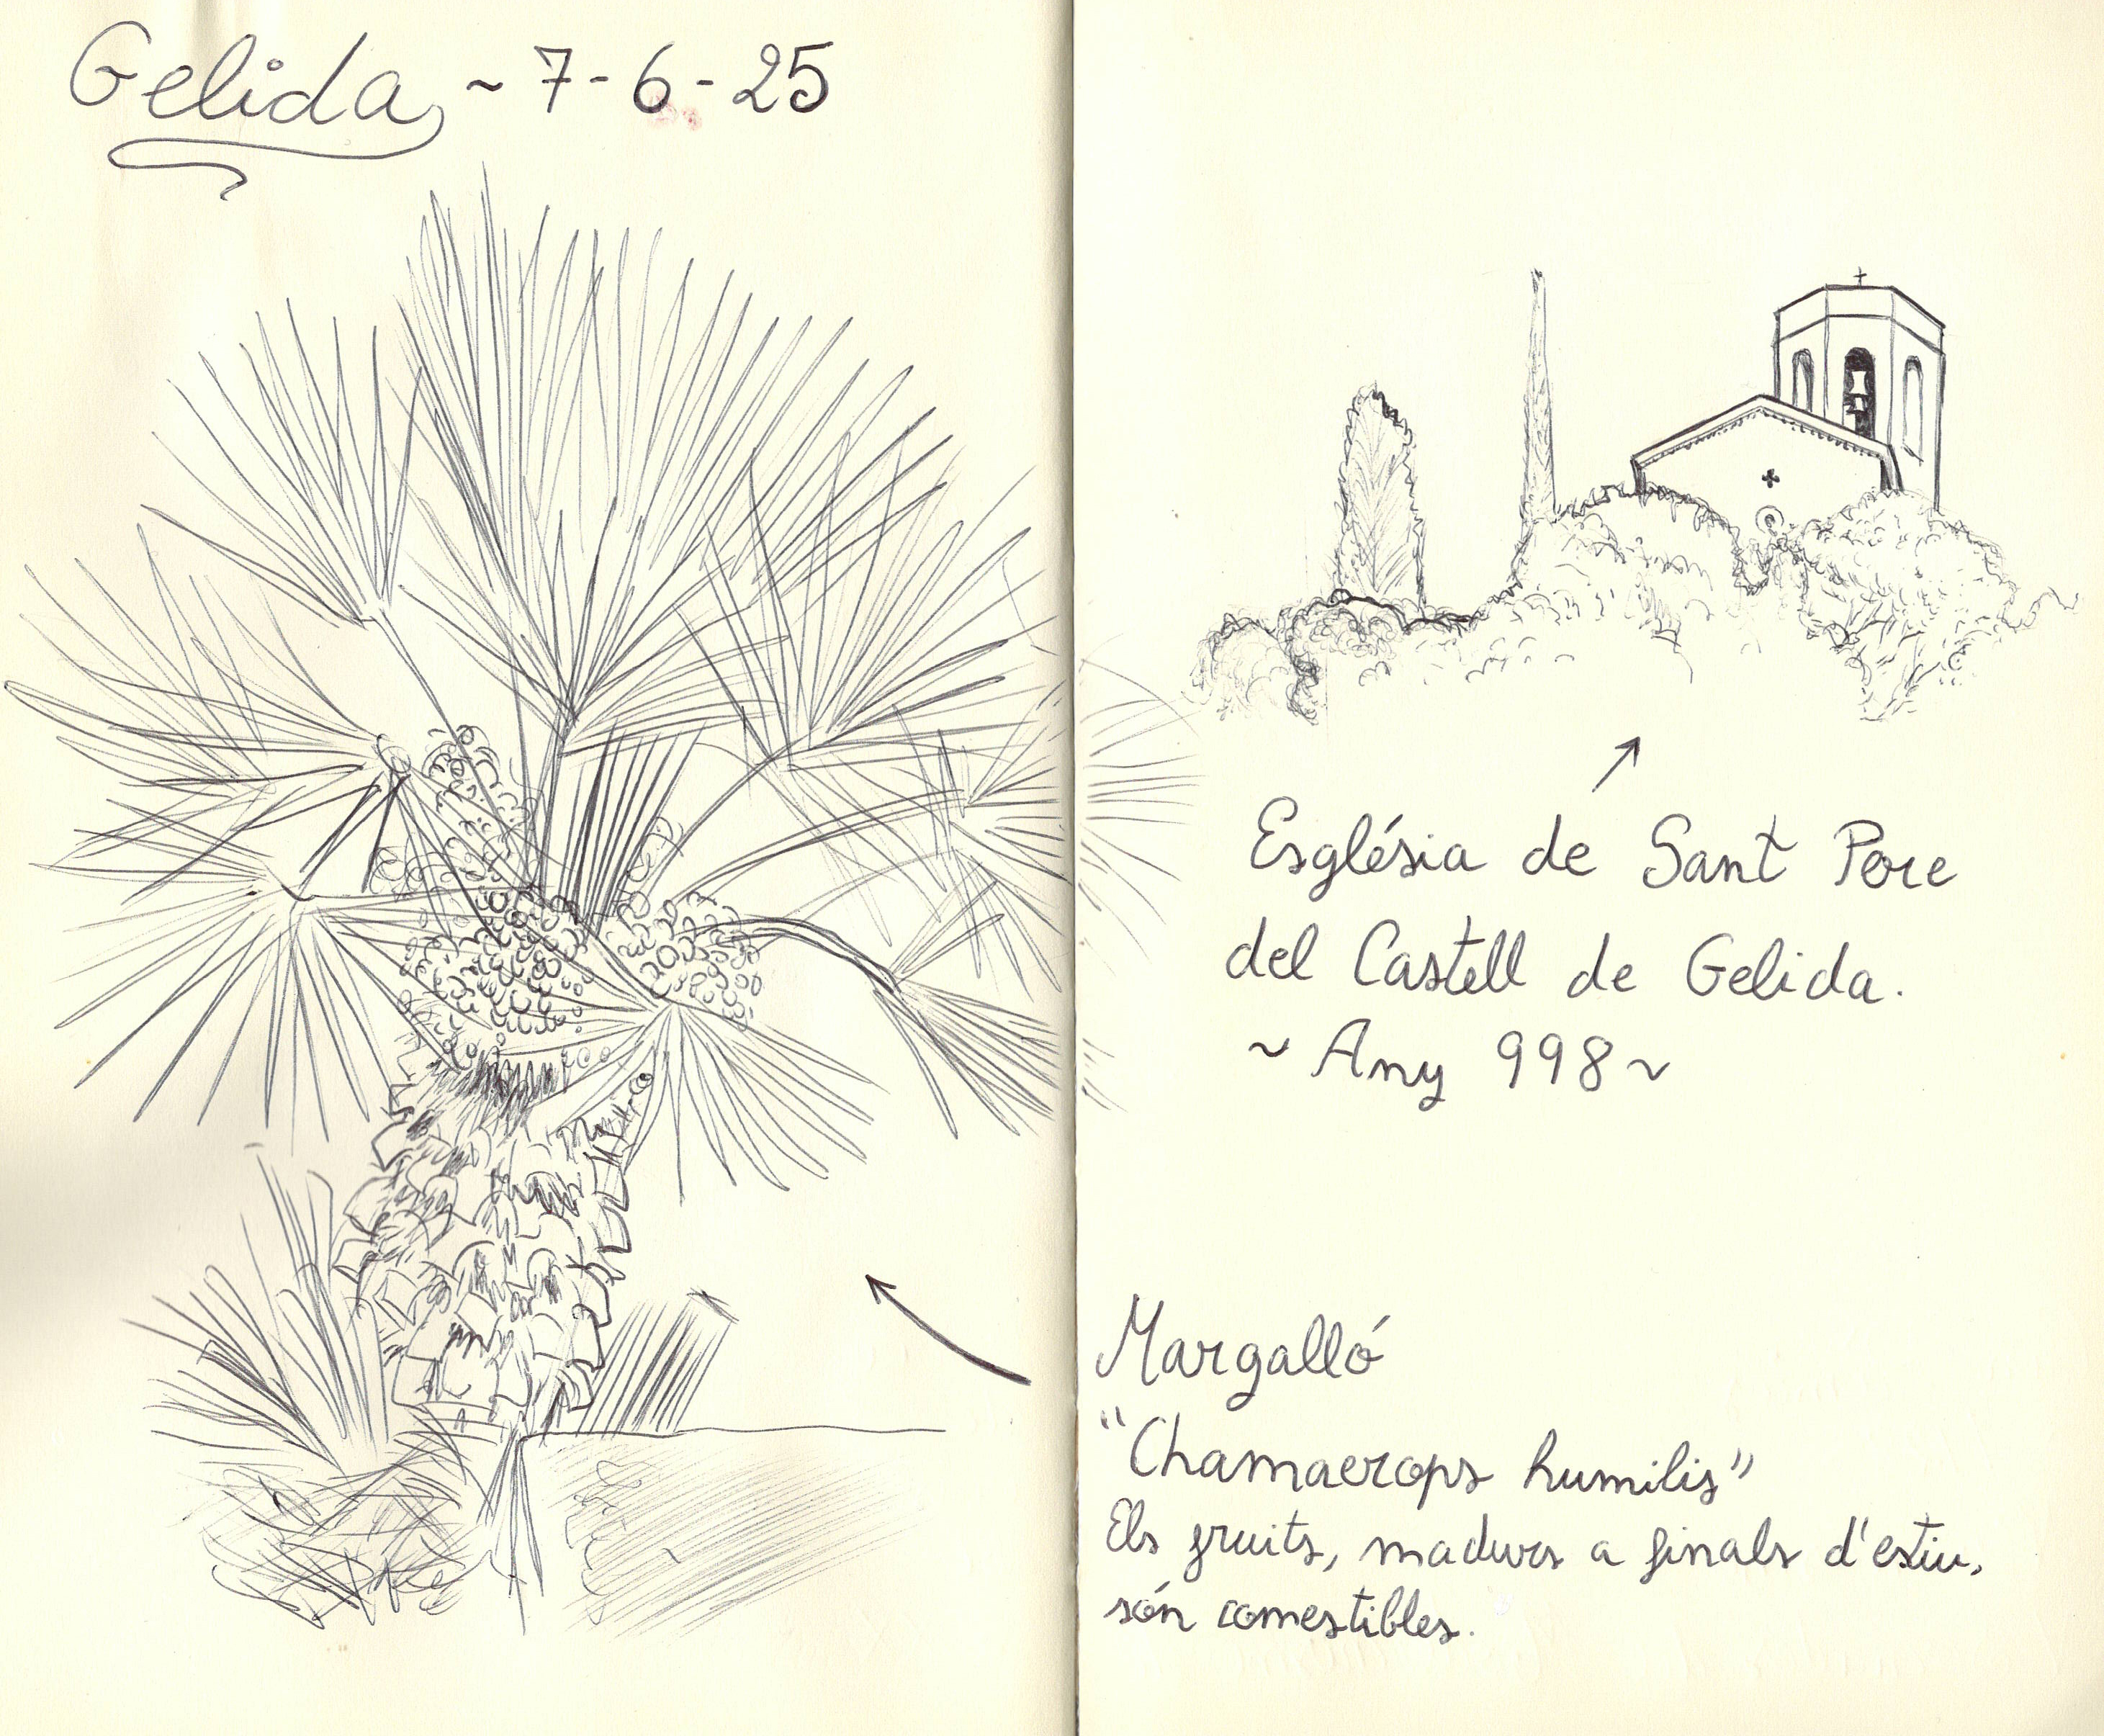 Gelida ~ 7-6-25
Església de Sant Pere
del Castell de Gelida.
~ Any 998 ~
Margalló
"Chamaerops humilis"
Els fruits, madurs a finals d'estiu,
són comestibles.